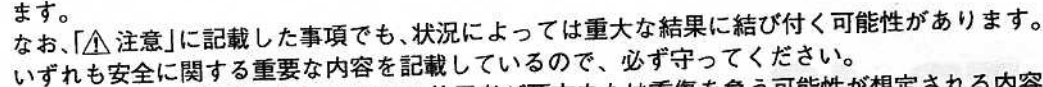 ます。
なお、「⚠注意」に記載した事項でも、状況によっては重大な結果に結び付く可能性があります。
いずれも安全に関する重要な内容を記載しているので、必ず守ってください。
重傷を負う可能性が想定される内容